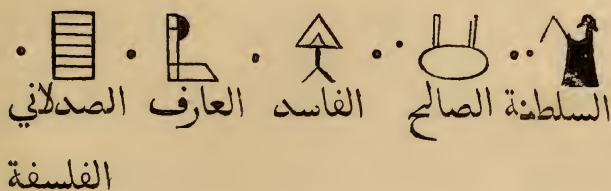 السلطنة الصالح الفاسد العارف الصدلاني
الفلسفة